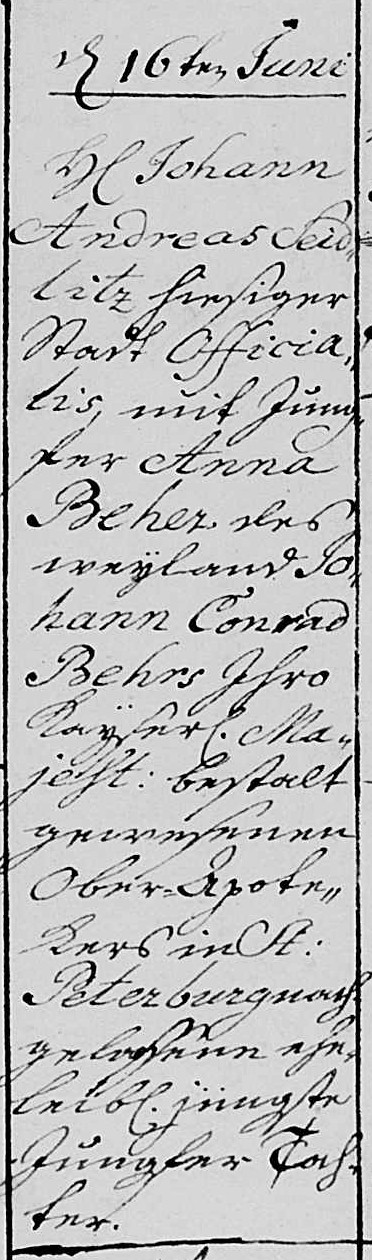 d 16ten Juni
H Johann
Andreas Seid=
litz hiesiger
Stadt Officia„
lis, mit Jung„
fer Anna
Beher. des
weyland Jo„
hann Conrad
Behrs Ihro
Kayserl. Ma„
jest: bestalt
gewesenen
Ober-Apote„
kers in St:
Peterburg nach
gelassene ehe„
leibl. jüngste
Jungfer Toch„
ter.